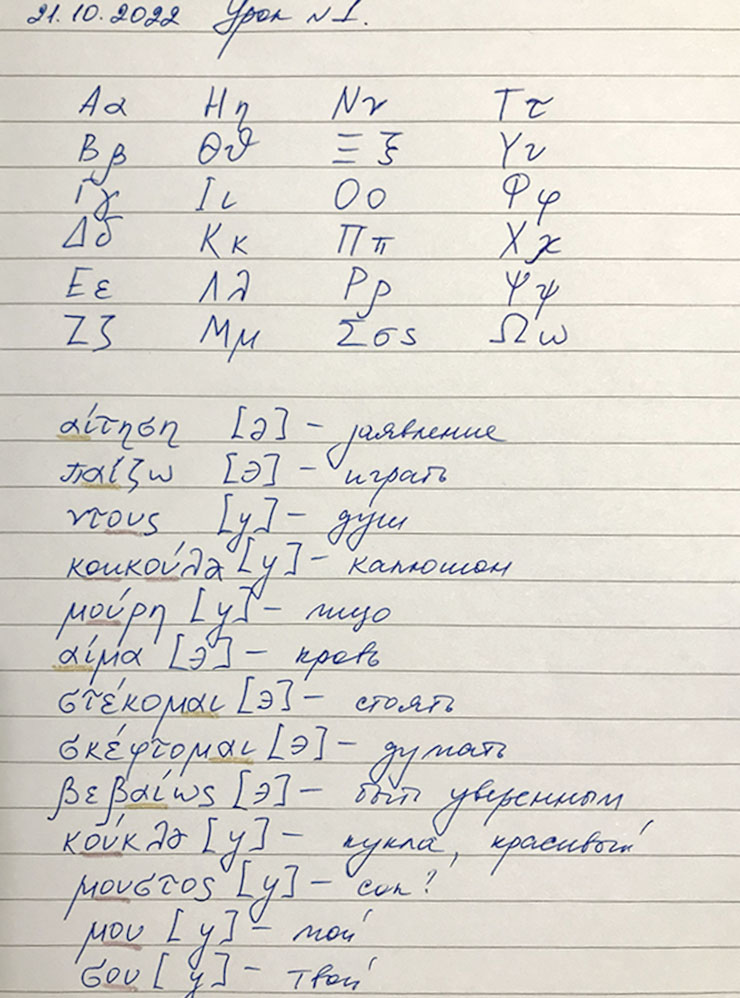 21.10.2022 Урок №1.
Αα Ηη Νν Ττ
Ββ Θϑ Ξξ Υυ
Γγ Ιι Οο Φφ
Δδ Κκ Ππ Χχ
Εε Λλ Ρρ Ψψ
Ζζ Μμ Σσς Ωω
αίτηση [э] – заявление
παίζω [э] – играть
ντους [у] – душ
κουκούλα [у] – капюшон
μούρη [у] – лицо
αίμα [э] – кровь
στέκομαι [э] – стоять
σκέφτομαι [э] – думать
βεβαίως [э] – быть уверенным
κούκλα [у] – кукла, красивый
μουστος [у] – сок?
μου [у] – мой
σου [у] – твой